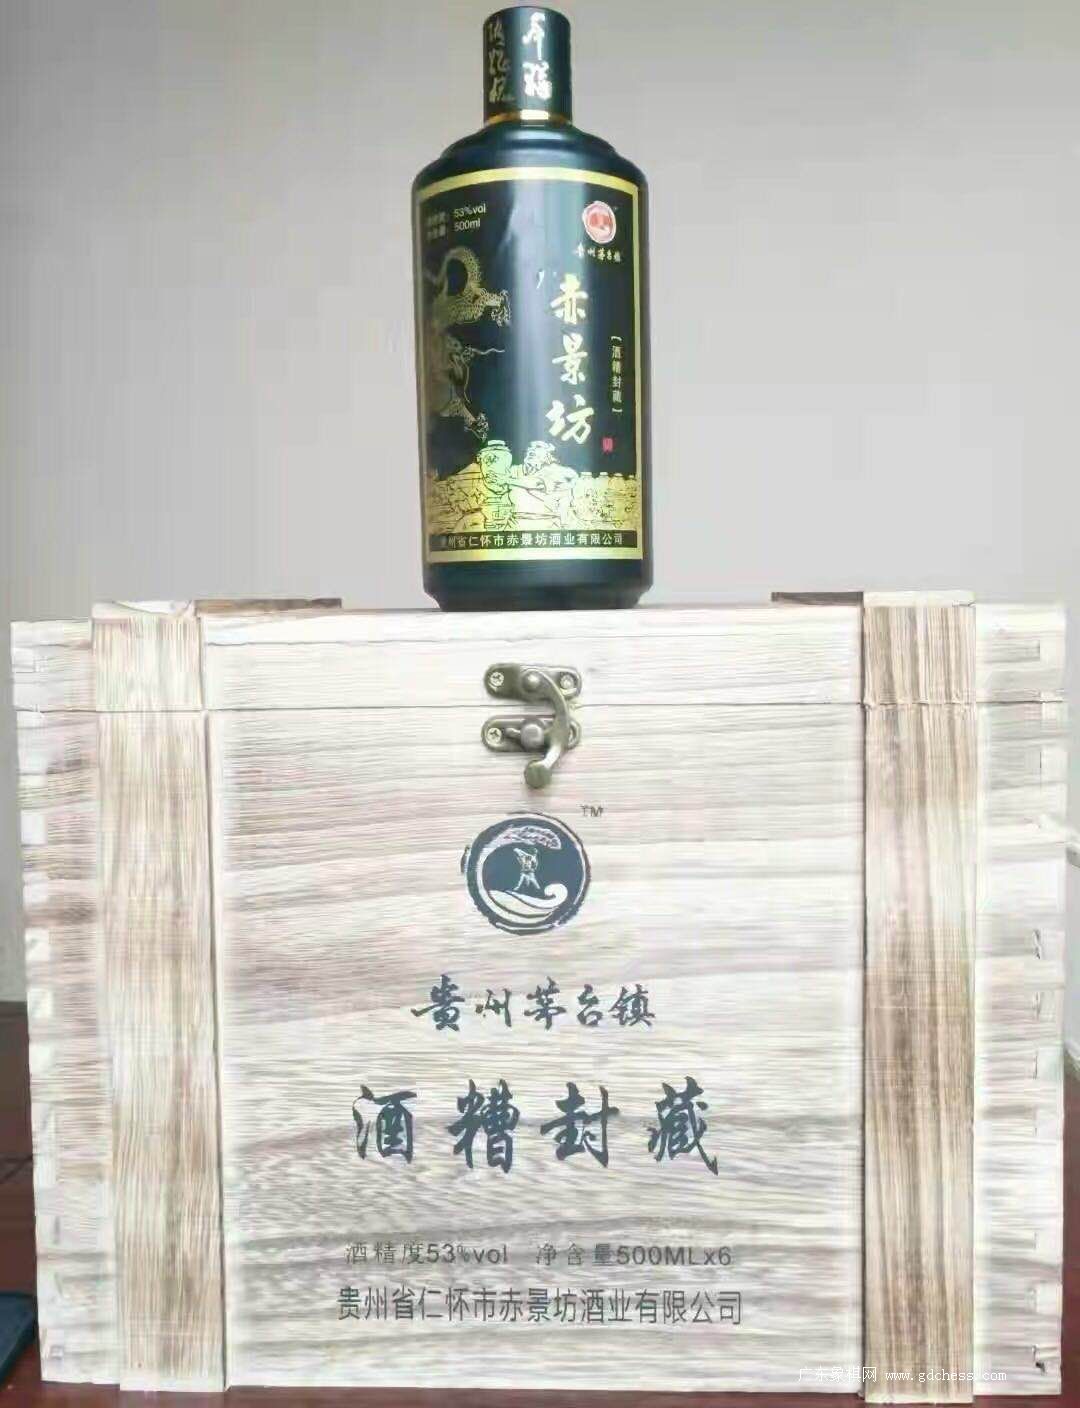 53%vol
500ml
贵州茅台镇
赤景坊
【酒糟封藏】
贵州省仁怀市赤景坊酒业有限公司
TM
贵州茅台镇
酒糟封藏
酒精度53%vol 净含量500MLx6
贵州省仁怀市赤景坊酒业有限公司
广东象棋网 www.gdchess.com